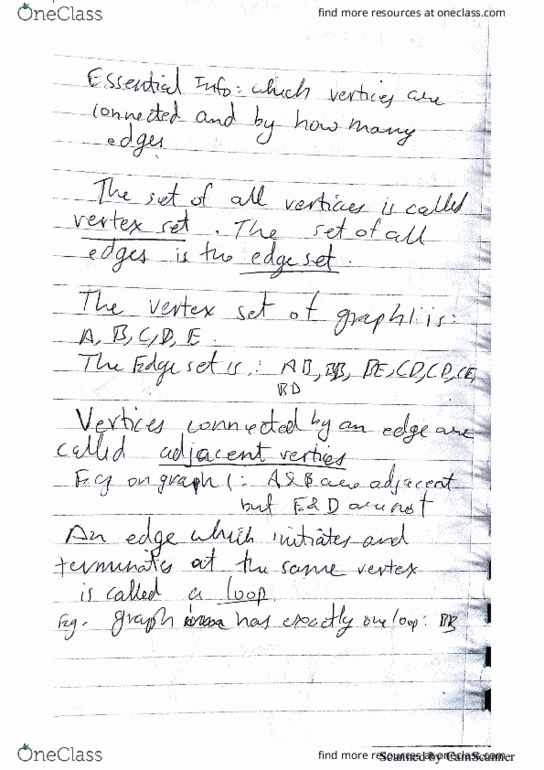 OneClass
find more resources at oneclass.com
Essential Info: which vertices are
connected and by how many
edges
The set of all vertices is called
vertex set. The set of all
edges is the edge set.
The vertex set of graph 1 is:
A, B, C, D, E
The Edge set is: AB, BB, BE, CD, CD, CE,
BD
Vertices connected by an edge are
called adjacent verties
Eg on graph 1: A & B are adjacent
but E & D are not
An edge which initiates and
terminates at the same vertex
is called a loop.
Eg. graph has exactly one loop: BB
OneClass
find more resources at oneclass.com
Scanned by CamScanner